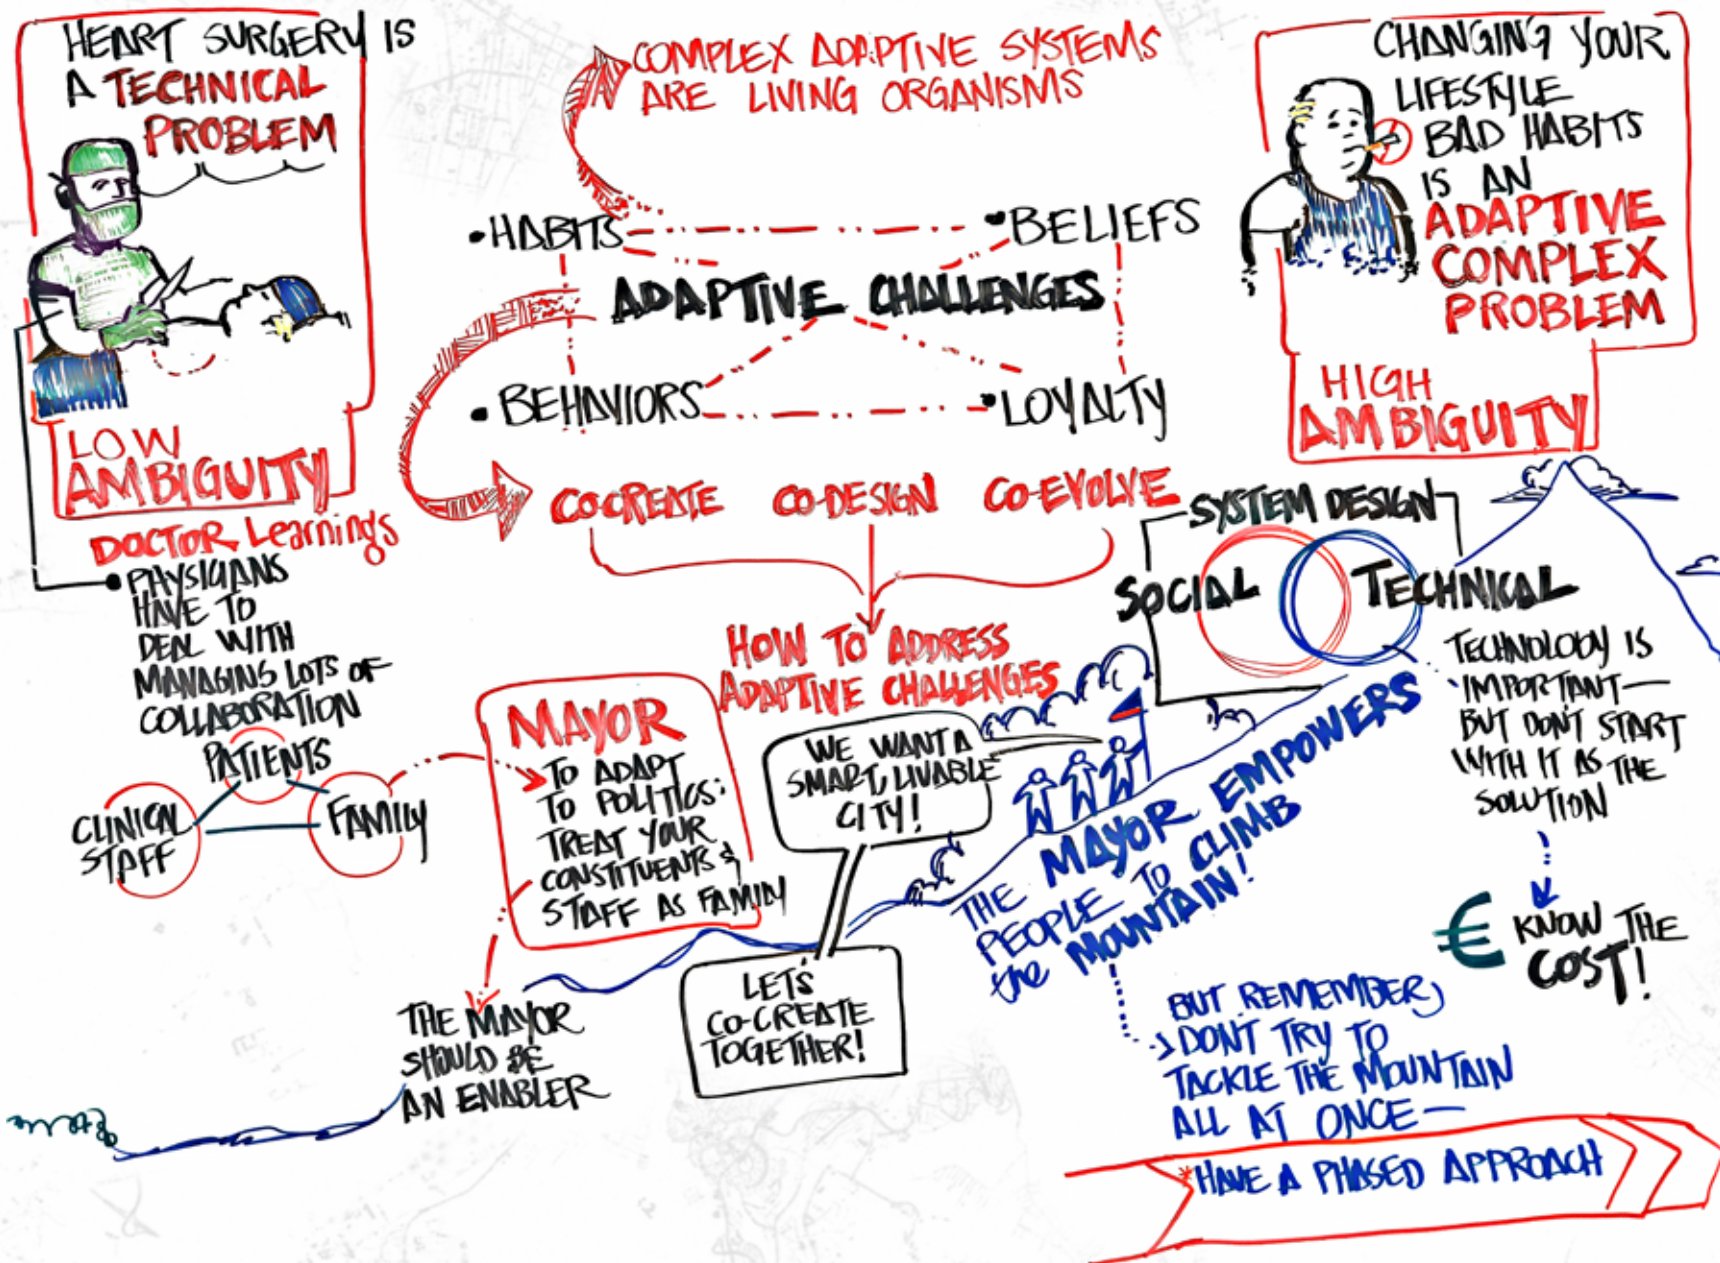 HEART SURGERY IS
A TECHNICAL
PROBLEM
LOW
AMBIGUITY
DOCTOR Learnings
• PHYSICIANS
HAVE TO
DEAL WITH
MANAGING LOTS OF
COLLABORATION
PATIENTS
CLINICAL
STAFF
FAMILY
COMPLEX ADAPTIVE SYSTEMS
ARE LIVING ORGANISMS
• HABITS
• BELIEFS
ADAPTIVE CHALLENGES
• BEHAVIORS
• LOYALTY
CO-CREATE CO-DESIGN CO-EVOLVE
HOW TO ADDRESS
ADAPTIVE CHALLENGES
MAYOR
TO ADAPT
TO POLITICS:
TREAT YOUR
CONSTITUENTS &
STAFF AS FAMILY
THE MAYOR
SHOULD BE
AN ENABLER
WE WANT A
SMART, LIVABLE
CITY!
LET'S
CO-CREATE
TOGETHER!
CHANGING YOUR
LIFESTYLE
BAD HABITS
IS AN
ADAPTIVE
COMPLEX
PROBLEM
HIGH
AMBIGUITY
SYSTEM DESIGN
SOCIAL
TECHNICAL
TECHNOLOGY IS
IMPORTANT—
BUT DON'T START
WITH IT AS THE
SOLUTION
€ KNOW THE
COST!
THE MAYOR EMPOWERS
PEOPLE TO CLIMB
the MOUNTAIN!
BUT REMEMBER,
DON'T TRY TO
TACKLE THE MOUNTAIN
ALL AT ONCE—
*HAVE A PHASED APPROACH